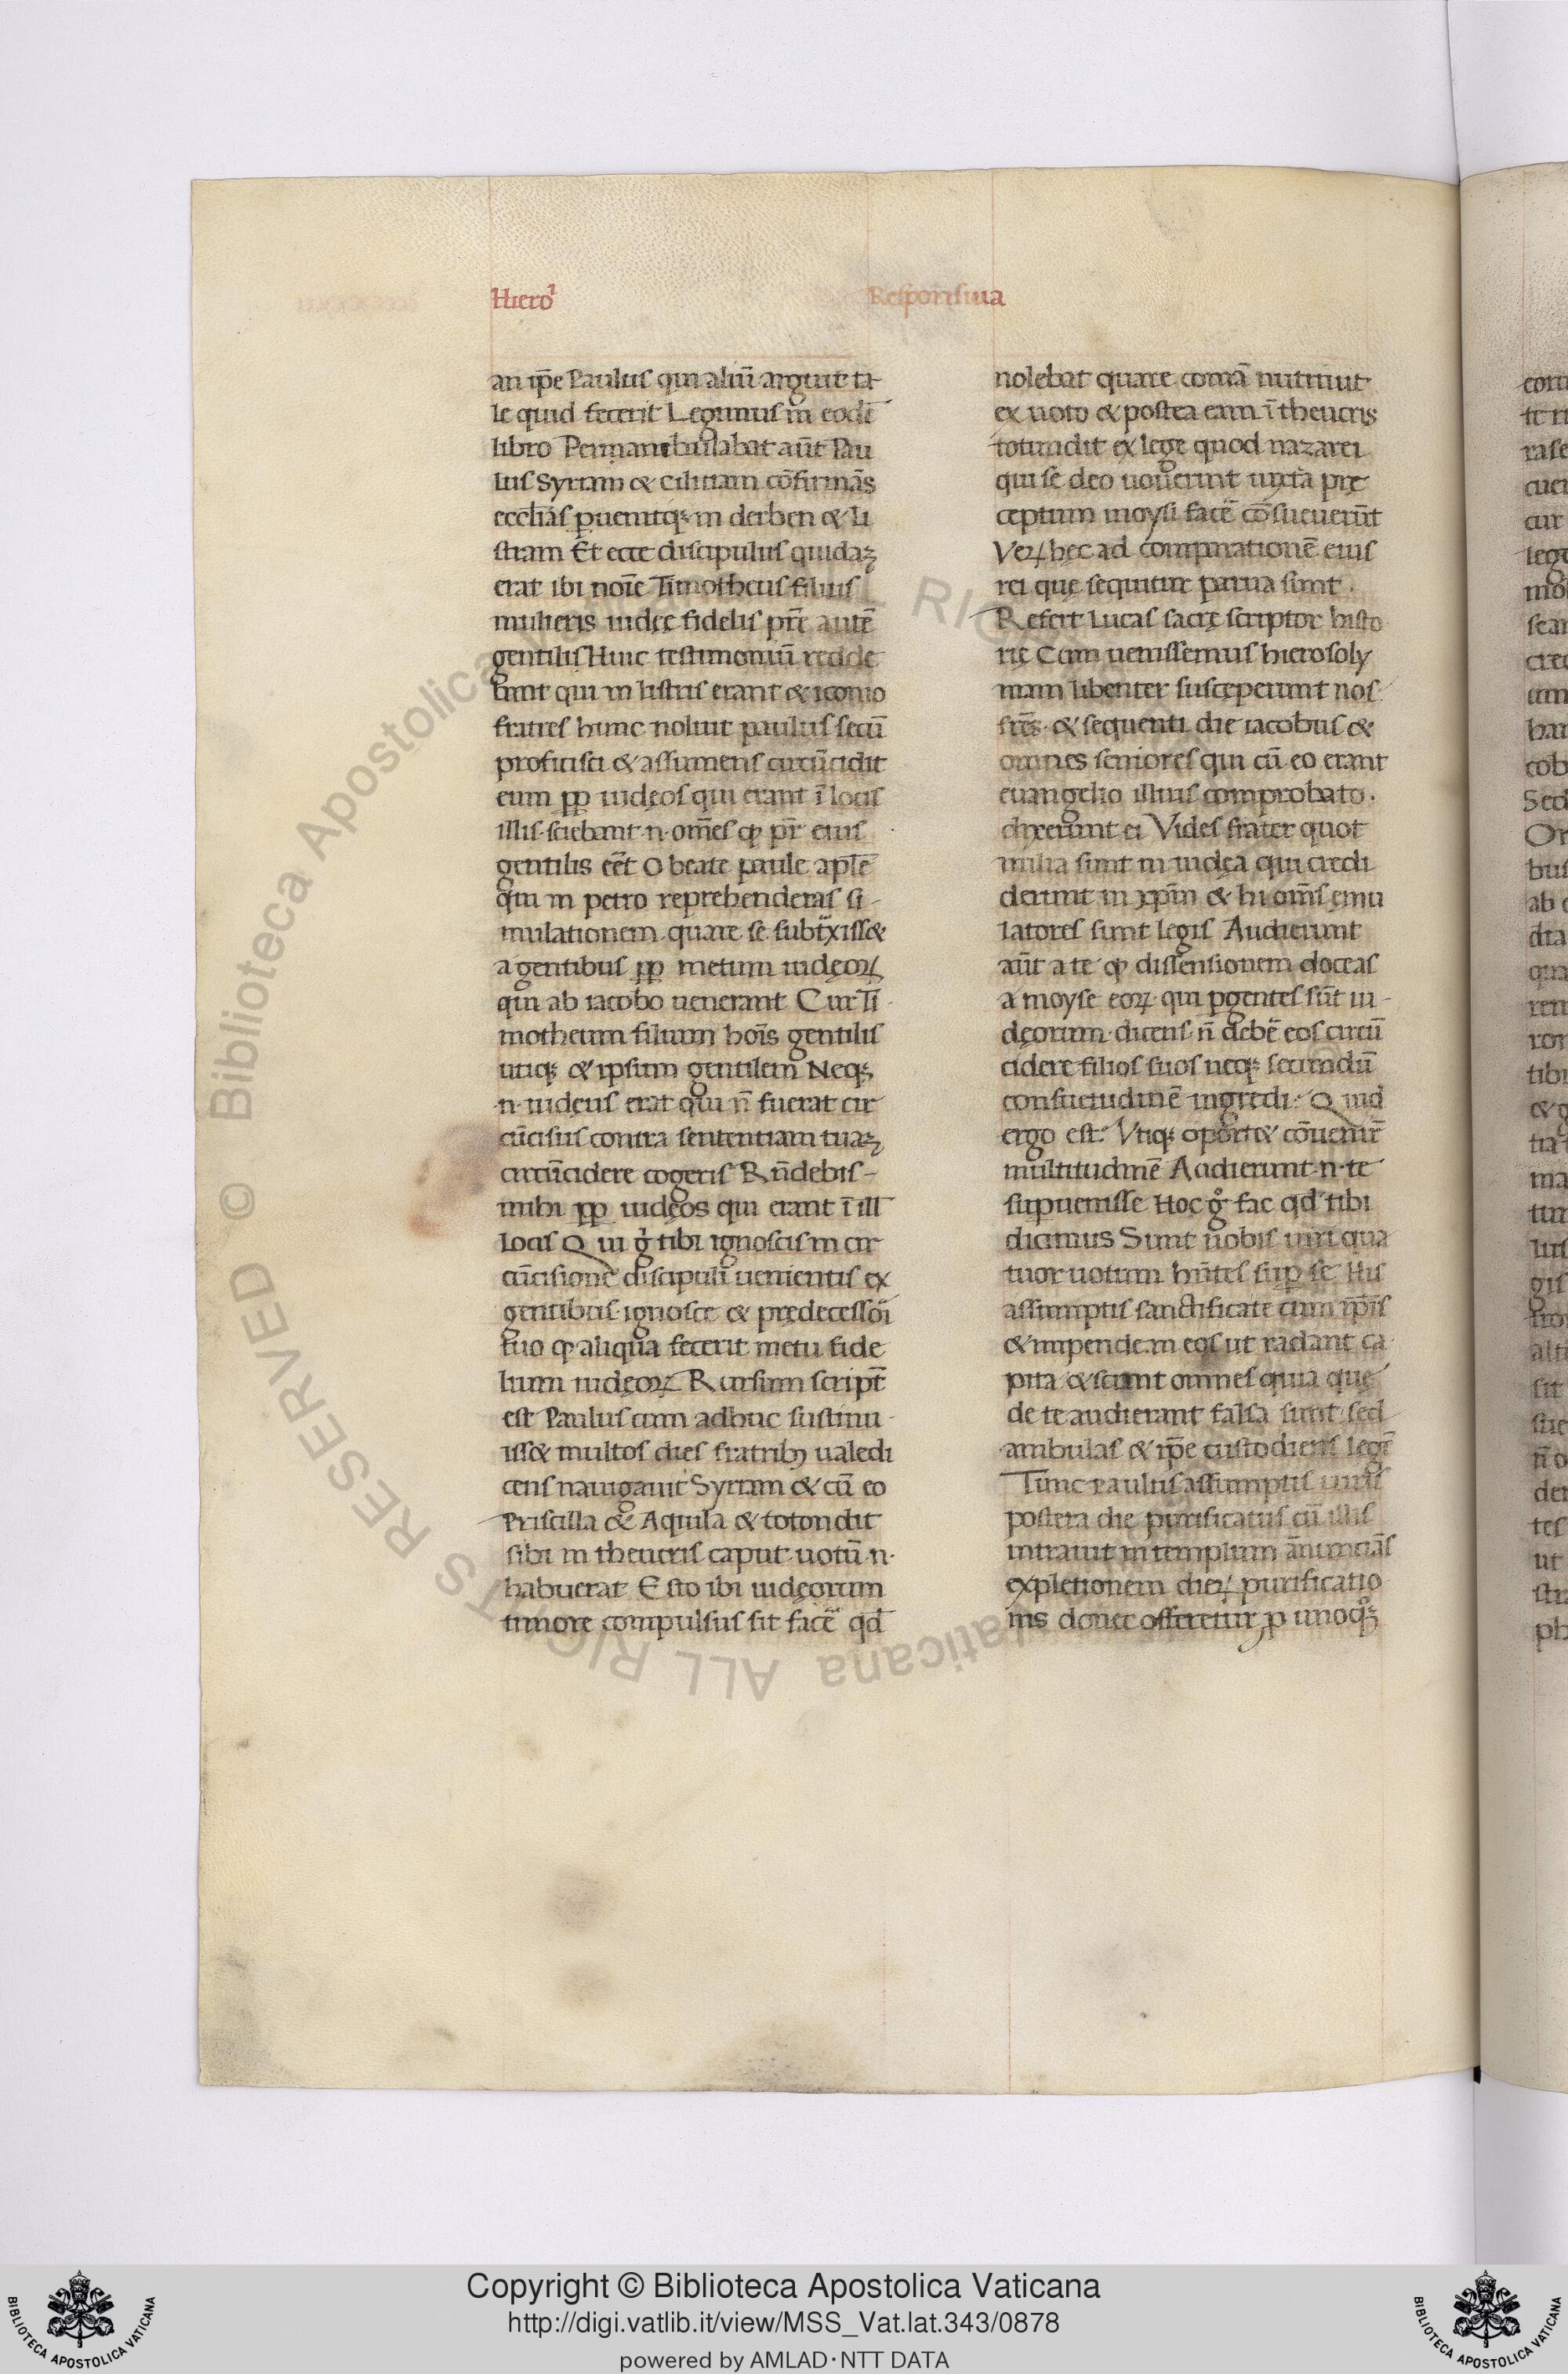 Hiero¹ Responsiua
an ip̄e Paulus qui aliū arguit ta-
le quid fecerit Legimus in eodē
libro Perambulabat aūt Pau
lus Syriam & ciliciam cōfirmās
eccl̄ias ꝑuenitq; in derben & li
stram Et ecce discipulus quidaꝫ
erat ibi noīe Timotheus filius
mulieris iudęe fidelis pr̄e autē
gentilis Huic testimoniū redde
bant qui in listris erant & iconio
fratres hunc uoluit paulus secū
proficisci & assumens circūcidit
eum ꝓꝑ iudęos qui erant ī locis
illis·sciebant·n·om̄es ꝙ pr̄ eius
gentilis eēt O beate paule apl̄e
qui in petro reprehenderas si-
mulationem·quare se subtͣxiss&
a gentibus ꝓꝑ metum iudęoꝝ
qui ab iacobo uenerant Cur Ti
motheum filium hoīs gentilis
utiq; & ipsum gentilem Neq;
·n·iudeus erat qui n̄ fuerat cir
cūcisus contra sententiam tuaꝫ
circūcidere cogeris Rn̄debis-
mihi ꝓꝑ iudęos qui erant ī ill̄
locis Qui gͥ tibi ignoscis in cir
cūcisione discipuli uenientis ex
gentibus·ignosce & prędecessoͥ
tuo ꝙ aliqua fecerit metu fide
lium iudęoꝝ Rursum script̄
est Paulus cum adhuc sustinu-
iss& multos dies fratribꝫ ualedi
cens nauigauit Syriam & cū eo
Priscilla & Aquila & totondit
sibi in theucris caput·uotū·n·
habuerat Esto ibi iudęorum
timore compulsus sit facē qd̄
nolebat quare comā nutriuit
ex uoto & postea eam ī theucris
totundit ex lege quod nazarei
qui se deo uouerint iuxta prę
ceptum moysi facē cōsueuerūt
Veꝝ hęc ad comparationē eius
rei quę sequitur parua sunt.
Refert Lucas sacrę scriptor histo
rię Cum uenissemus hierosoly
mam libenter susceperunt nos
fr̄es·& sequenti die iacobus &
omnes seniores qui cū eo erant
euangelio illius comprobato.
dixerunt ei Vides frater quot
milia sunt in iudęa qui credi
derunt in xp̄m & hi om̄s ęmu
latores sunt legis Audierunt
aūt a te ꝙ dissensionem doceas
a moyse eoꝝ qui ꝑ gentes sūt iu-
dęorum·dicens·n̄ debē eos circū
cidere filios suos neq; secundū
consuetudinē ingredi: Quid
ergo est: Vtiq; oport& cōuenir̄
multitudinē Audierunt·n·te
suꝑuenisse Hoc gͦ fac qd̄ tibi
dicimus Sunt nobis uiri qua
tuor uotum hn̄tes suꝑ se His
assumptis sanctifica te cum ip̄is
& impende in eos ut radant ca
pita & sciant omnes quia quę
de te audierant falsa sunt·sed
ambulas & ip̄e custodiens legē
Tunc Paulus assumptis uiris
postera die purificatus cū illis
intrauit in templum ānuncias
expletionem dieꝝ purificatio
nis donec offeretur ꝓ unoqͦ;
Copyright © Biblioteca Apostolica Vaticana
http://digi.vatlib.it/view/MSS_Vat.lat.343/0878
powered by AMLAD·NTT DATA